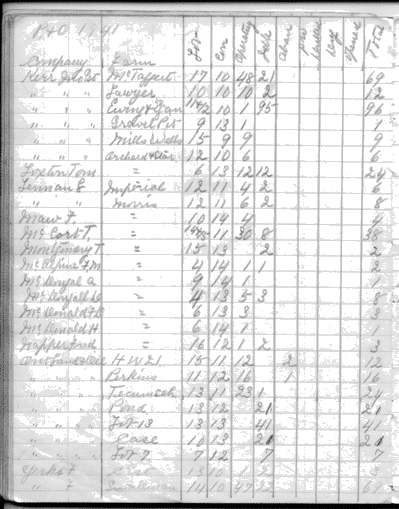 P & O 1941
Company Farm Lot Con Operating Idle aban Total
McTaggert 17 10 48 21 69
" " " Sawyer 10 10 10 2 12
" " " 10 1 95 96
" " " Gravel Pit 9 13 1 1
" " " Mills Wells 15 9 9 9
" " " 12 10 6 6
Tom " 6 13 12 12 24
Imperial 12 11 4 2 6
" " Morris 12 11 6 2 8
Maw F. " 10 14 4 4
McCort T. " 11 30 8 38
Montgmary T " 15 13 2 2
McAlpine F, M " 4 14 1 1 2
McDougal A " 9 14 1 1
" 4 13 5 3 8
McDonald " 6 13 3 3
McDonald H " 6 14 1 1
" 16 12 1 2 3
15 11 12 2 12
" " " Perkins 11 12 16 1 16
" " " Tecumseh 13 11 23 1 24
" " " Pond 13 12 21 21
" " " Lot 13 13 13 41 41
" " " Case 10 13 21 21
" " " Lot 7 7 12 7 7
13 10 1 2 3
" F 14 10 47